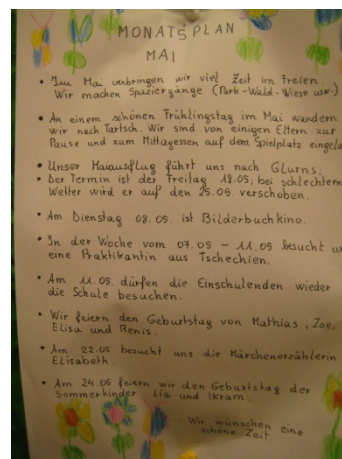 MONATSPLAN
MAI
• Im Mai verbringen wir viel Zeit im Freien.
Wir machen Spaziergänge (Park-Wald-Wiese usw.)
• An einem schönen Frühlingstag im Mai wandern
wir nach Tartsch. Wir sind von einigen Eltern zur
Pause und zum Mittagessen auf dem Spielplatz eingela
• Unser Maiausflug führt uns nach Glurns.
• Der Termin ist der Freitag 18.05; bei schlechtem
Wetter wird er auf den 25.05. verschoben.
• Am Dienstag 08.05. ist Bilderbuchkino.
• In der Woche vom 07.05 - 11.05 besucht u
eine Praktikantin aus Tschechien.
• Am 11.05. dürfen die Einschulenden wieder
die Schule besuchen.
• Wir feiern den Geburtstag von Mathias, Zoe,
Elisa und Renis.
• Am 22.05 besucht uns die Märchenerzählerin
Elisabeth.
• Am 24.05 feiern wir den Geburtstag der
Sommerkinder Lia und Ikram.
Wir wünschen eine
schöne Zeit